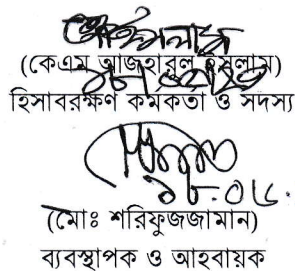 (কেএম আজহারুল ইসলাম)
হিসাবরক্ষণ কর্মকর্তা ও সদস্য
১৮.০৮.
(মোঃ শরিফুজজামান)
ব্যবস্থাপক ও আহবায়ক